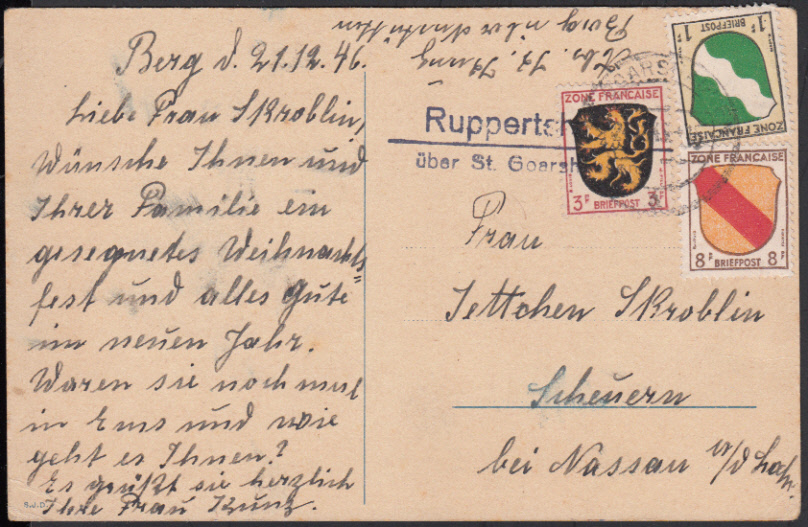 Berg d. 21.12.46.
Liebe Frau Skroblin,
Wünsche Ihnen und
Ihrer Familie ein
gesegnetes Weihnachts„
fest und alles Gute
im neuen Jahr.
Waren sie noch mal
in Ems und wie
geht es Ihnen?
Es grüßt sie herzlich
Ihre Frau Kunz.
Berg über
Ruppertsh
über St. Goarsh
ZONE FRANCAISE
3F BRIEFPOST 3
1F BRIEFPOST 1F
ZONE FRANCAISE
ZONE FRANCAISE
8F BRIEFPOST 8F
GOARSH
Frau
Jettchen Skroblin
Scheuern
bei Nassau a/d Lahn.